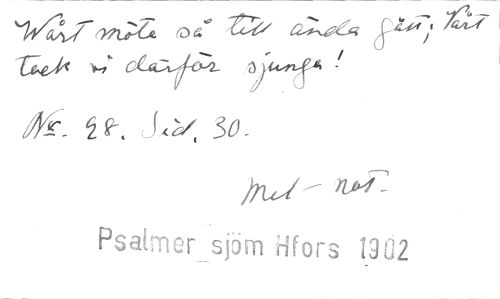 Wårt möte så till ända gått; Vårt
tack vi därför sjunga!
No. 28. Sid. 30.
Mel-not.
Psalmer sjöm Hfors 1902